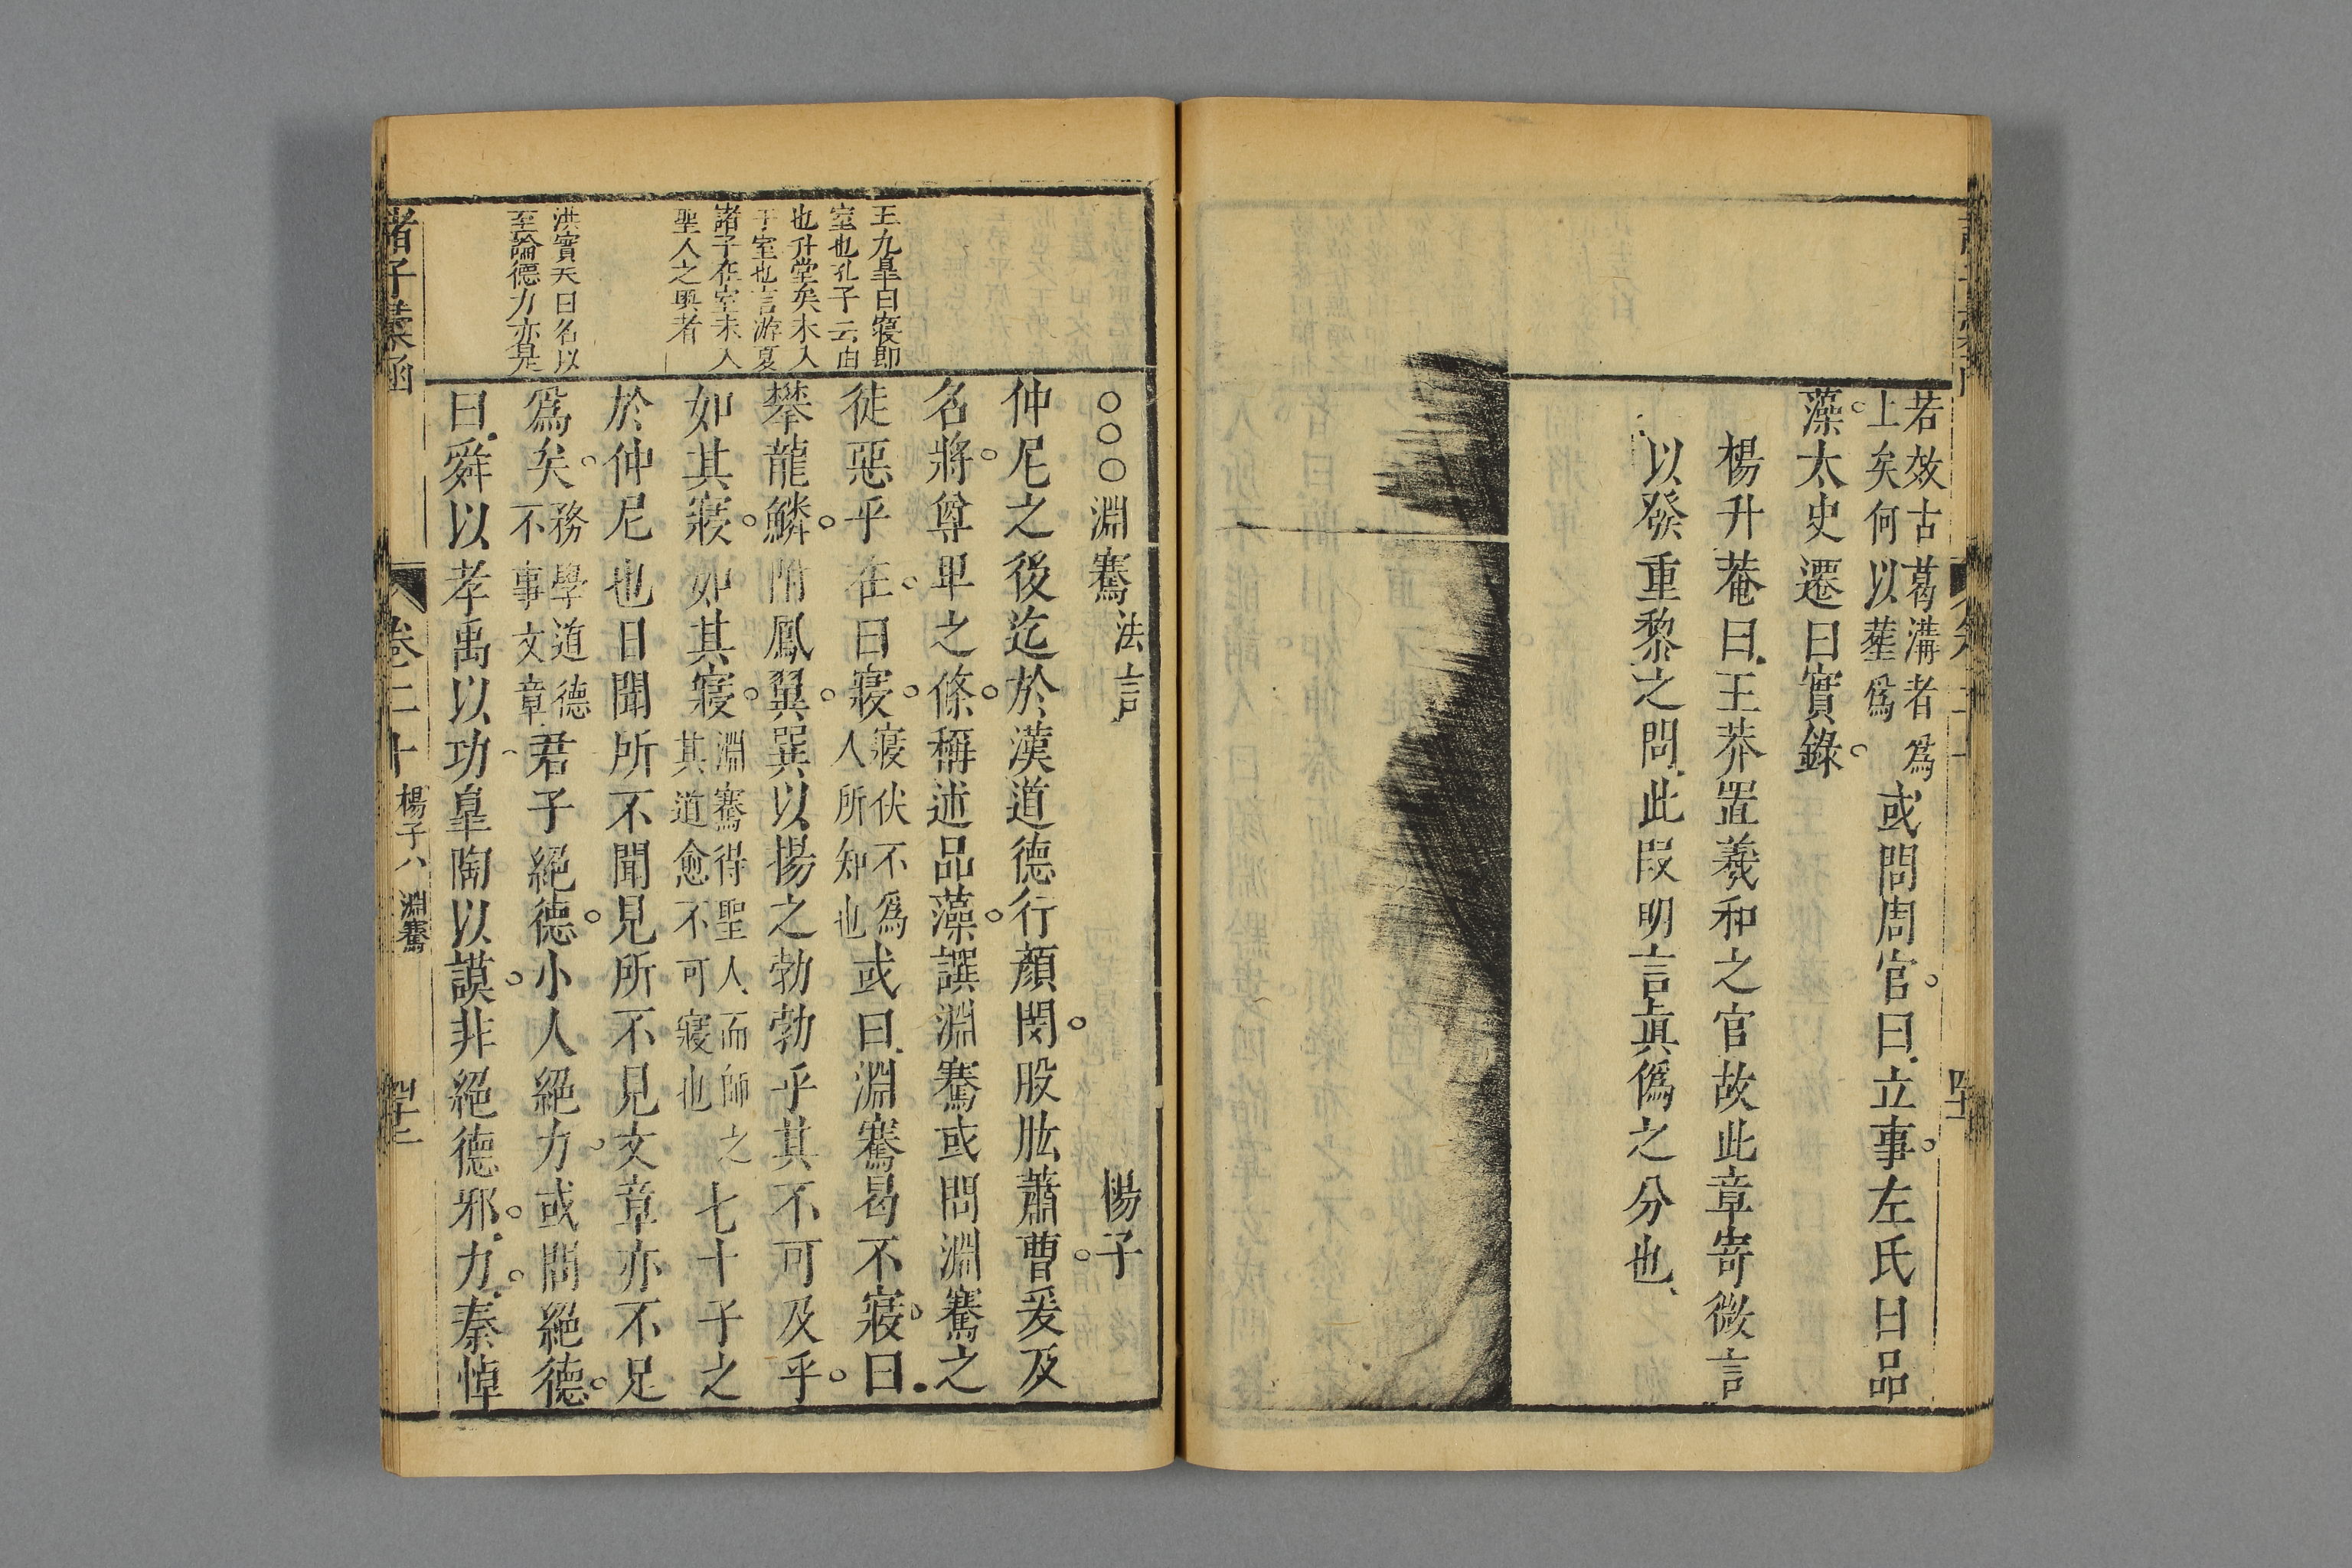 若效古葛溝者爲
上矣何以蓷爲
或問周官曰立事左氏曰品
藻太史遷曰實錄
楊升菴曰王莽置羲和之官故此章寄微言
以發重黎之問此段明言眞僞之分也
○○○淵騫法言　楊子
仲尼之後迄於漢道德行顔閔股肱蕭曹爰及
名將尊卑之條稱述品藻譔淵騫或問淵騫之
徒惡乎在曰寢
寢伏不爲
人所知也
或曰淵騫曷不寢曰
攀龍鱗附鳳翼巽以揚之勃勃乎其不可及乎
如其寢如其寢
淵騫得聖人而師之
其道愈不可寢也
七十子之
於仲尼也日聞所不聞見所不見文章亦不足
爲矣
務學道德
不事文章
君子絕德小人絕力或問絕德
曰舜以孝禹以功皐陶以謨非絕德邪力秦悼
王九皐曰寢即
室也孔子云由
也升堂矣未入
于室也言游夏
諸子在室未入
聖人之奧者
洪實天曰名以
至論德力亦是
諸子彙函
卷二十
楊子八
淵騫